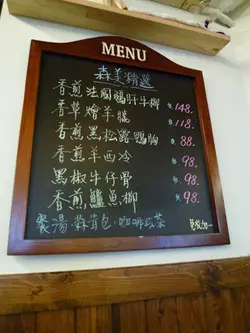 MENU
森美精選
香煎法國鵝肝牛柳 $148.
香草燴羊膝 $118.
香煎黑松露鴨胸 $88.
香煎羊西冷 $98.
黑椒牛仔骨 $98.
香煎鱸魚柳 $98.
餐湯·蒜茸包·咖啡或茶